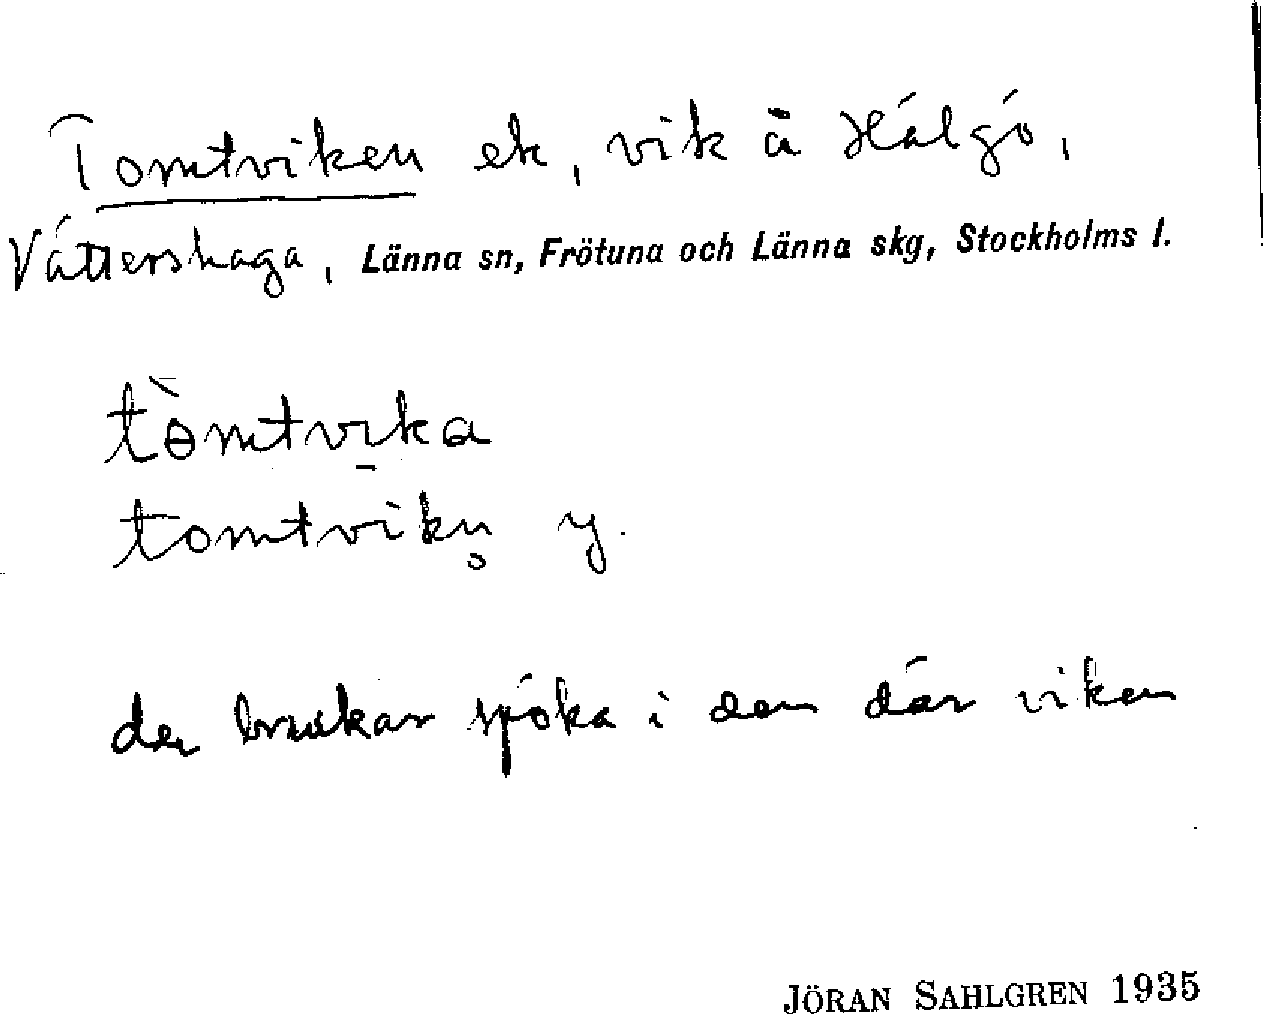 Tomtviken ek, vik å Hälgö,
Vättershaga, Länna sn, Frötuna och Länna skg, Stockholms l.
tòmtvika
tomtvikn̥ y.
det brukar spöka i den där viken
JÖRAN SAHLGREN 1935